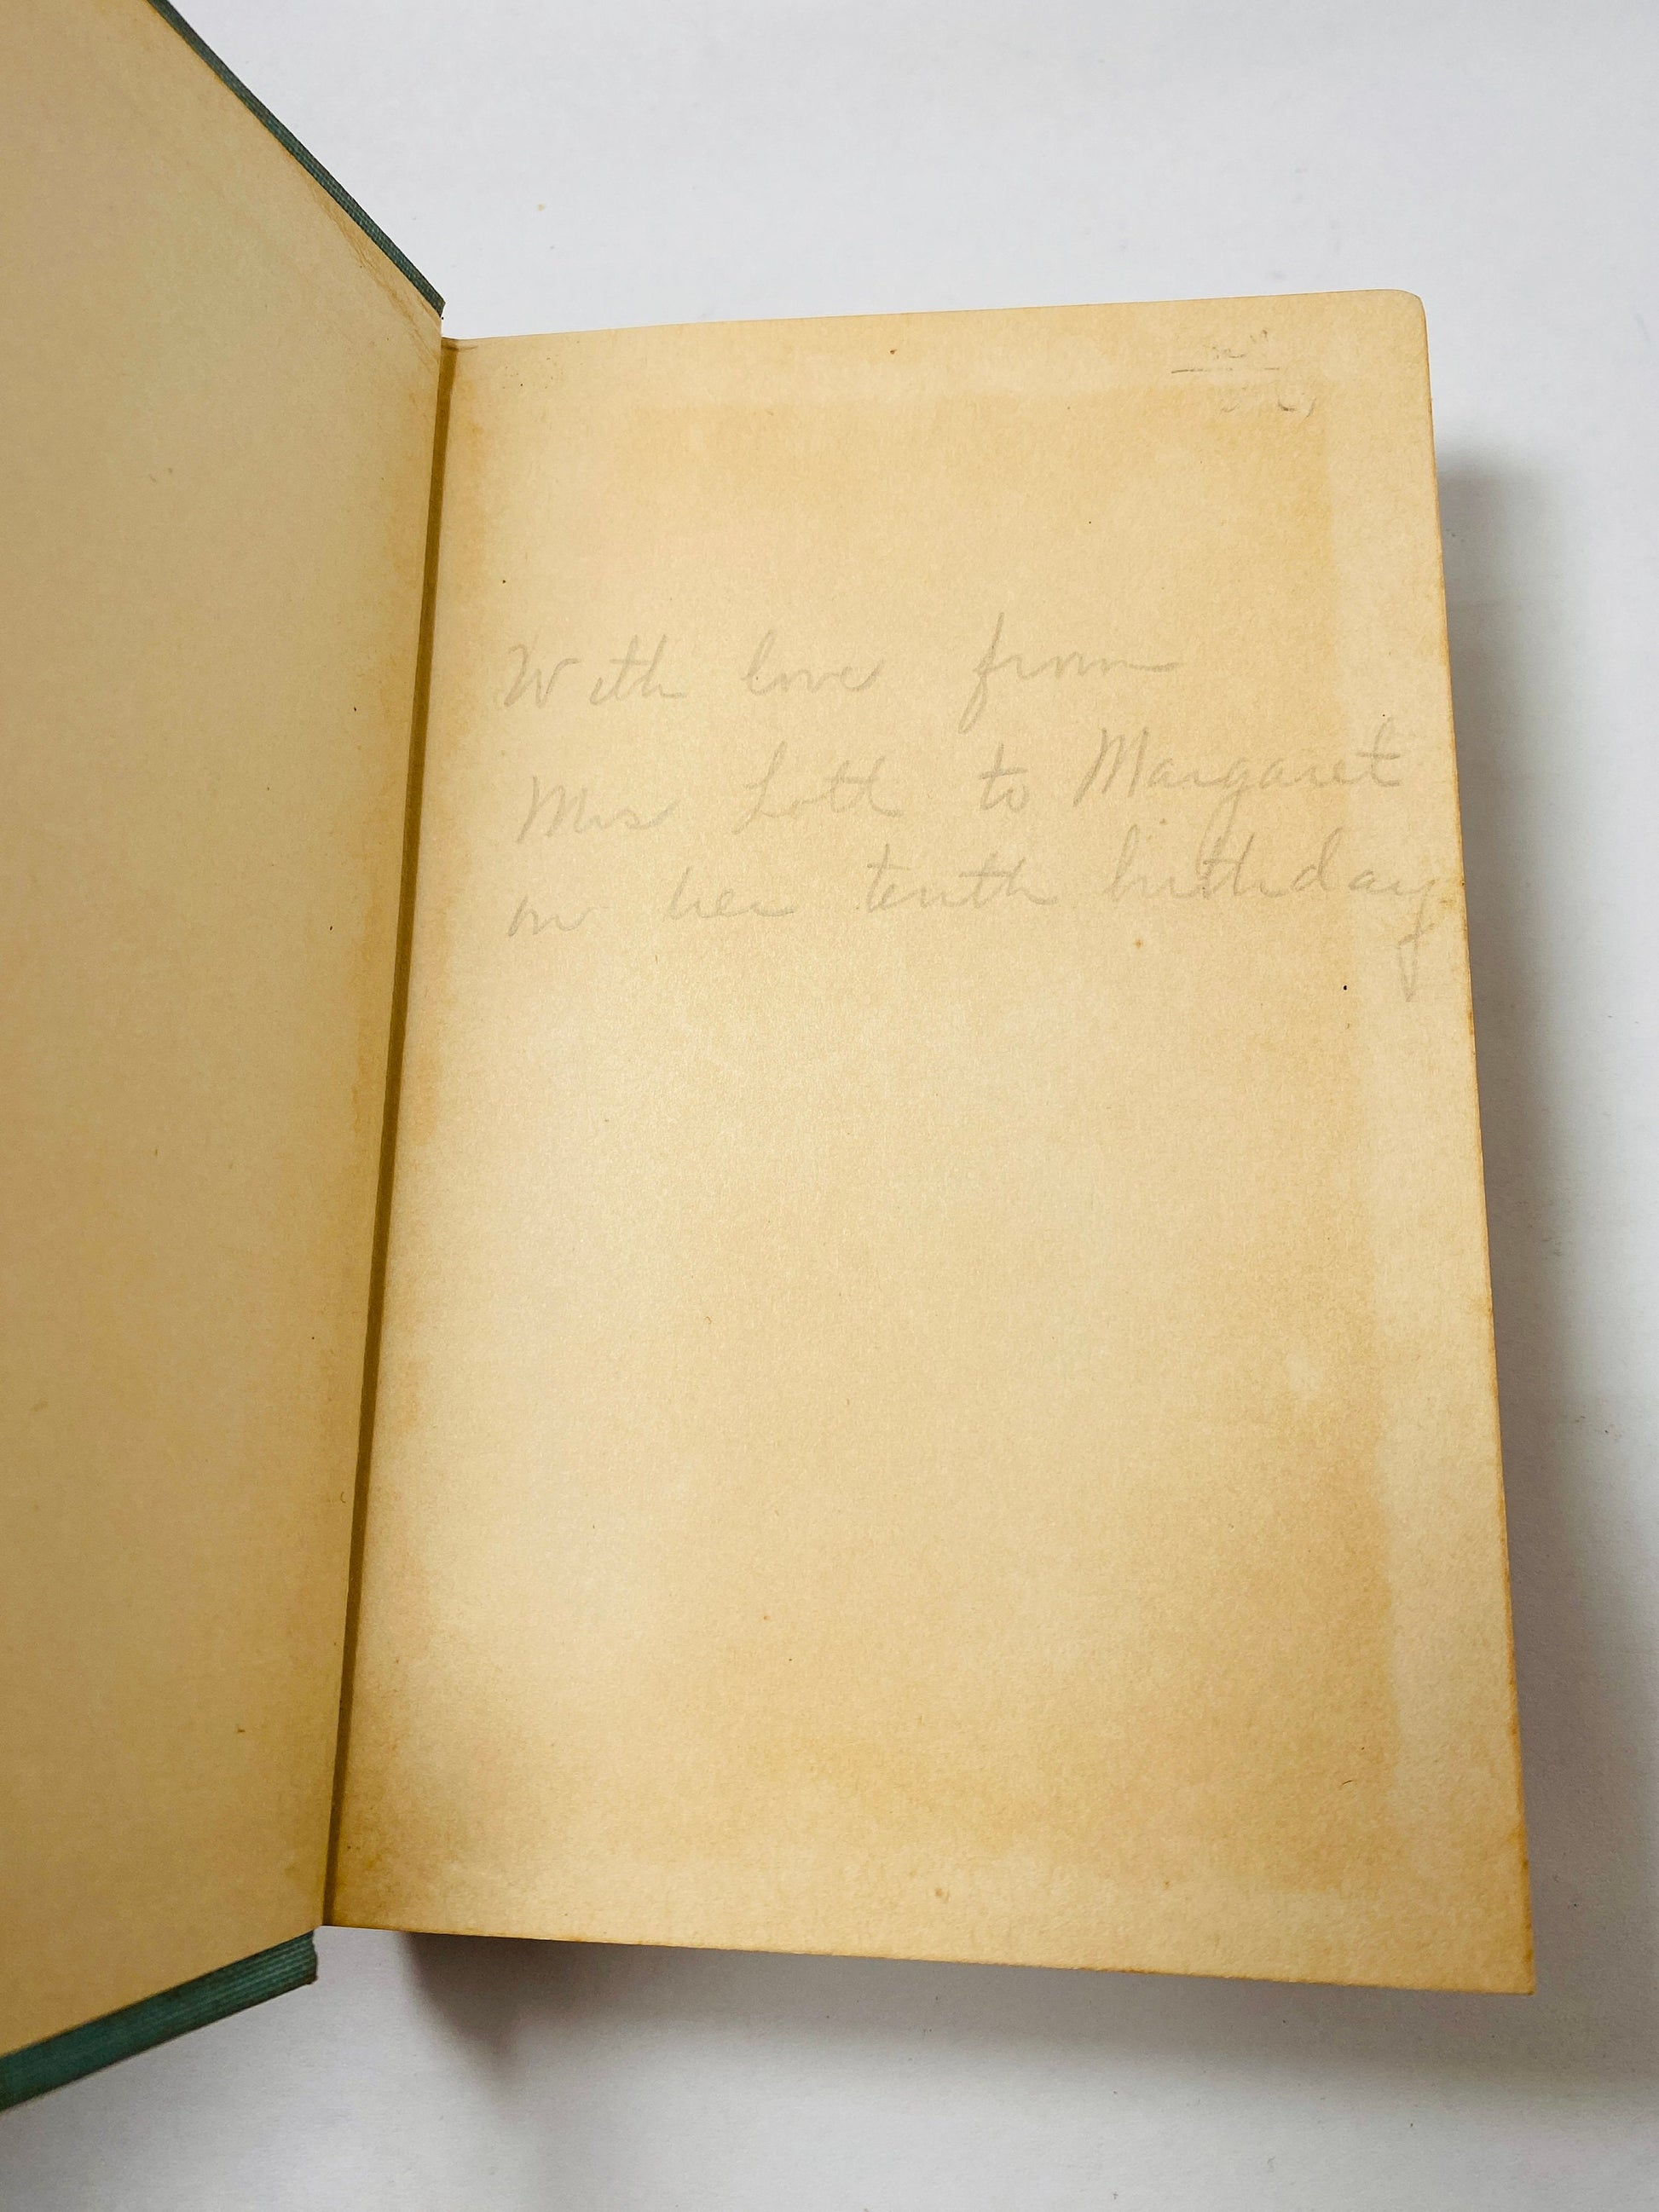 With love from
Mrs Lott to Margaret
on her tenth birthday